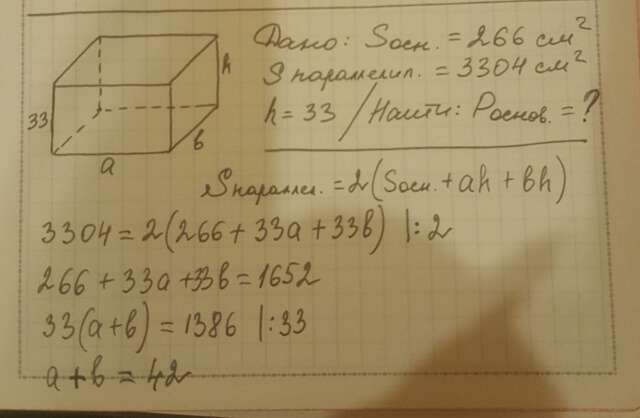 Дано: Sосн. = 266 см²
S параллелип. = 3304 см²
h = 33 / Найти: Pоснов. = ?
33
h
b
a
Sпараллел. = 2(Sосн. + ah + bh)
3304 = 2(266 + 33a + 33b) |:2
266 + 33a + 33b = 1652
33(a+b) = 1386 |:33
a + b = 42